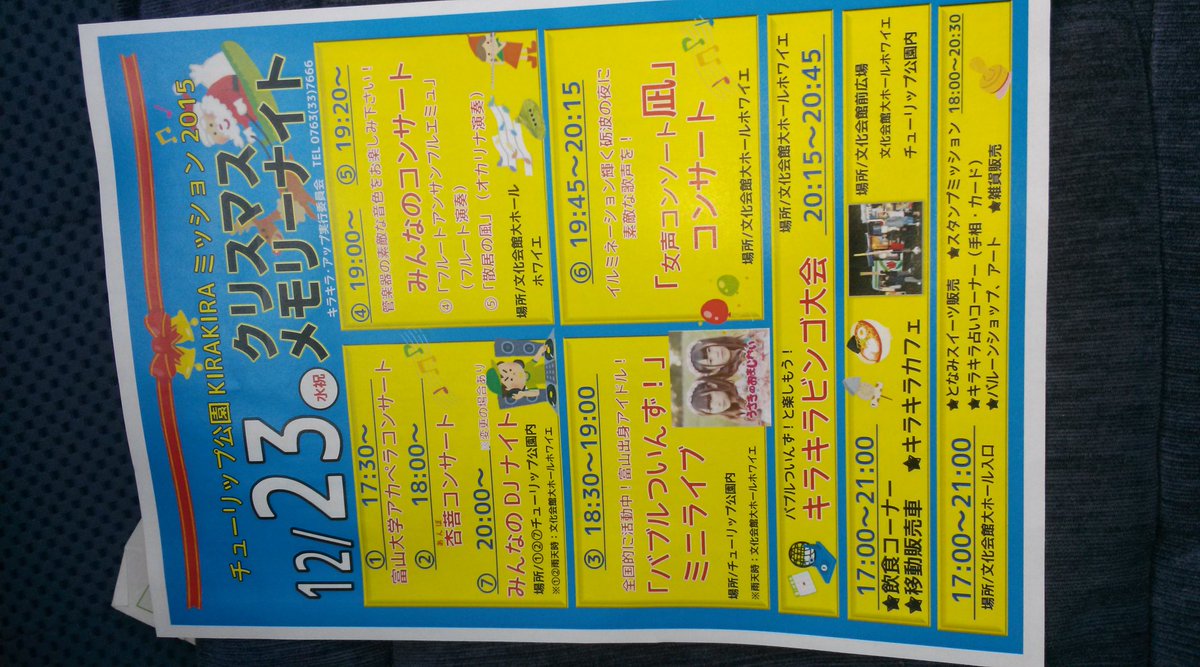 チューリップ公園 KIRAKIRA ミッション 2015
12/23
水祝
クリスマス
メモリーナイト
キラキラ・アップ実行委員会 TEL 0763(33)7666
① 17:30～
富山大学アカペラコンサート
② 18:00～
あんぽ
杏菩コンサート
※変更の場合あり
⑦ 20:00～
みんなのDJナイト
場所/①②⑦チューリップ公園内
※①②雨天時：文化会館大ホールホワイエ
④ 19:00～ ⑤ 19:20～
管楽器の素敵な音色をお楽しみ下さい！
みんなのコンサート
④「フルートアンサンブルエミュ」
（フルート演奏）
⑤「散居の風」（オカリナ演奏）
場所/文化会館大ホール
ホワイエ
③ 18:30～19:00
全国的に活動中！富山出身アイドル！
「バブルついんず！」
ミニライブ
うさぎのおまじない
場所/チューリップ公園内
※雨天時：文化会館大ホールホワイエ
⑥ 19:45～20:15
イルミネーション輝く砺波の夜に
素敵な歌声を！
「女声コンソート凪」
コンサート
場所/文化会館大ホールホワイエ
バブルついんず！と楽しもう！
場所/文化会館大ホールホワイエ
キラキラビンゴ大会 20:15～20:45
17:00～21:00
★飲食コーナー
★移動販売車 ★キラキラカフェ
場所/文化会館前広場
文化会館大ホールホワイエ
チューリップ公園内
17:00～21:00
場所/文化会館大ホール入口
★となみスイーツ販売 ★スタンプミッション 18:00～20:30
★キラキラ占いコーナー（手相・カード）
★バルーンショップ、アート ★雑貨販売